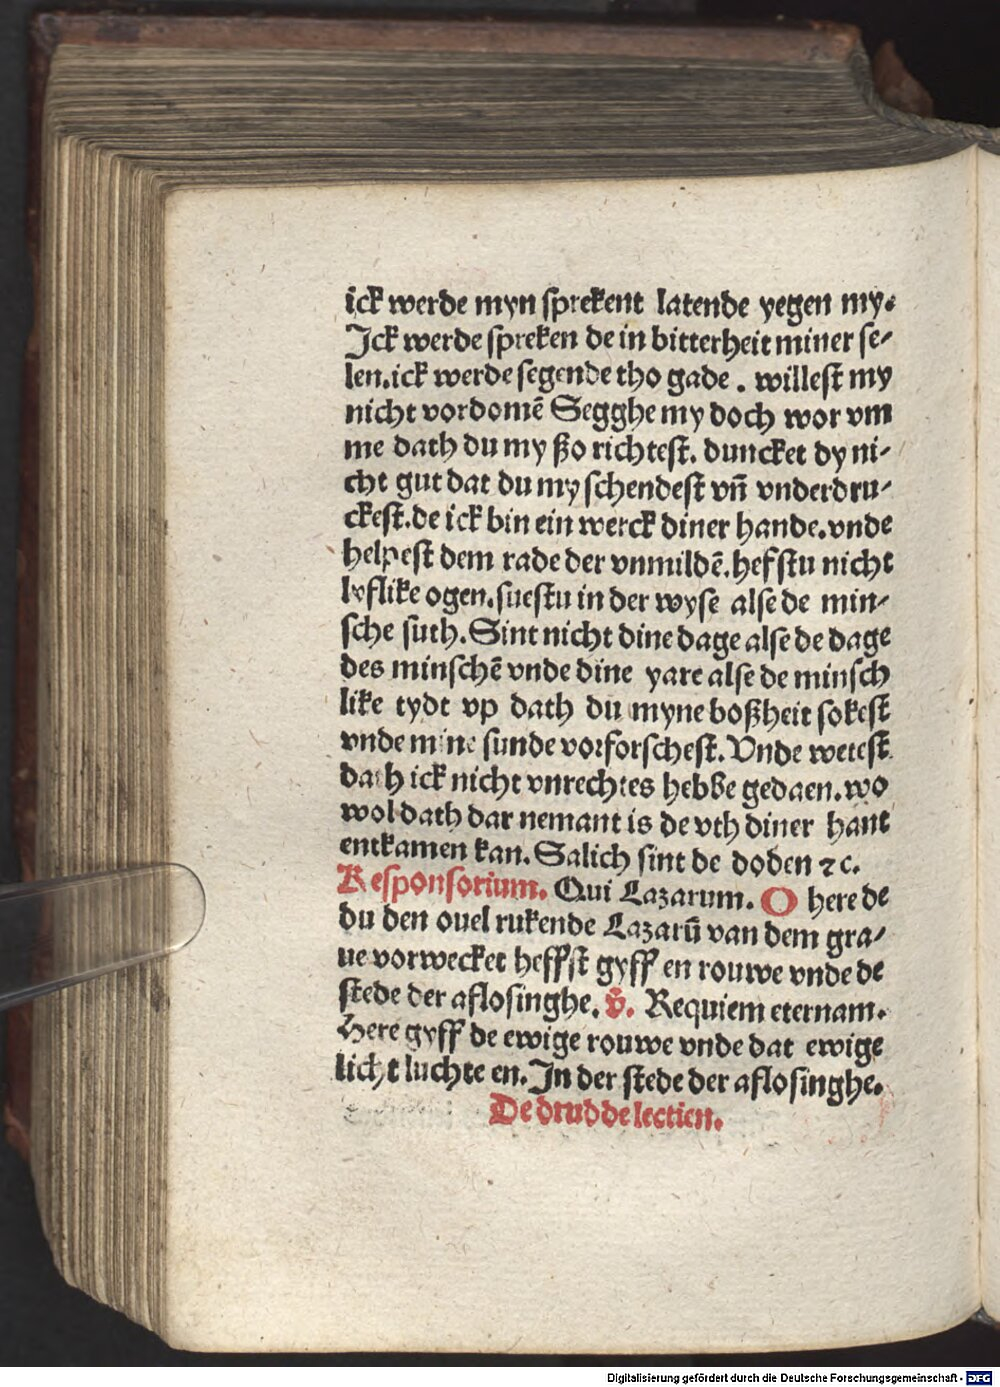 ick werde myn sprekent latende yegen my.
Ick werde spreken de in bitterheit miner se-
len. ick werde segende tho gade. willest my
nicht vordomē Segghe my doch wor vm
me dath du my ßo richtest. duncket dy ni-
cht gut dat du my schendest vn̄ vnderdru-
ckest. de ick bin ein werck diner hande. vnde
helpest dem rade der vnmildē. hefstu nicht
lyflike ogen. suestu in der wyse alse de min-
sche suth. Sint nicht dine dage alse de dage
des minschē vnde dine yare alse de minsch
like tydt vp dath du myne boßheit sokest
vnde mine sunde vorforschest. Vnde wetest
dath ick nicht vnrechtes hebbe gedaen. wo
wol dath dar nemant is de vth diner hant
entkamen kan. Salich sint de doden ⁊c.
Responsorium. Qui Lazarum. O here de
du den ouel rukende Lazarū van dem gra-
ue vorwecket heffst gyff en rouwe vnde de
stede der aflosinghe. v̄. Requiem eternam.
Here gyff de ewige rouwe vnde dat ewige
licht luchte en. In der stede der aflosinghe.
De drudde lectien.
Digitalisierung gefördert durch die Deutsche Forschungsgemeinschaft - DFG